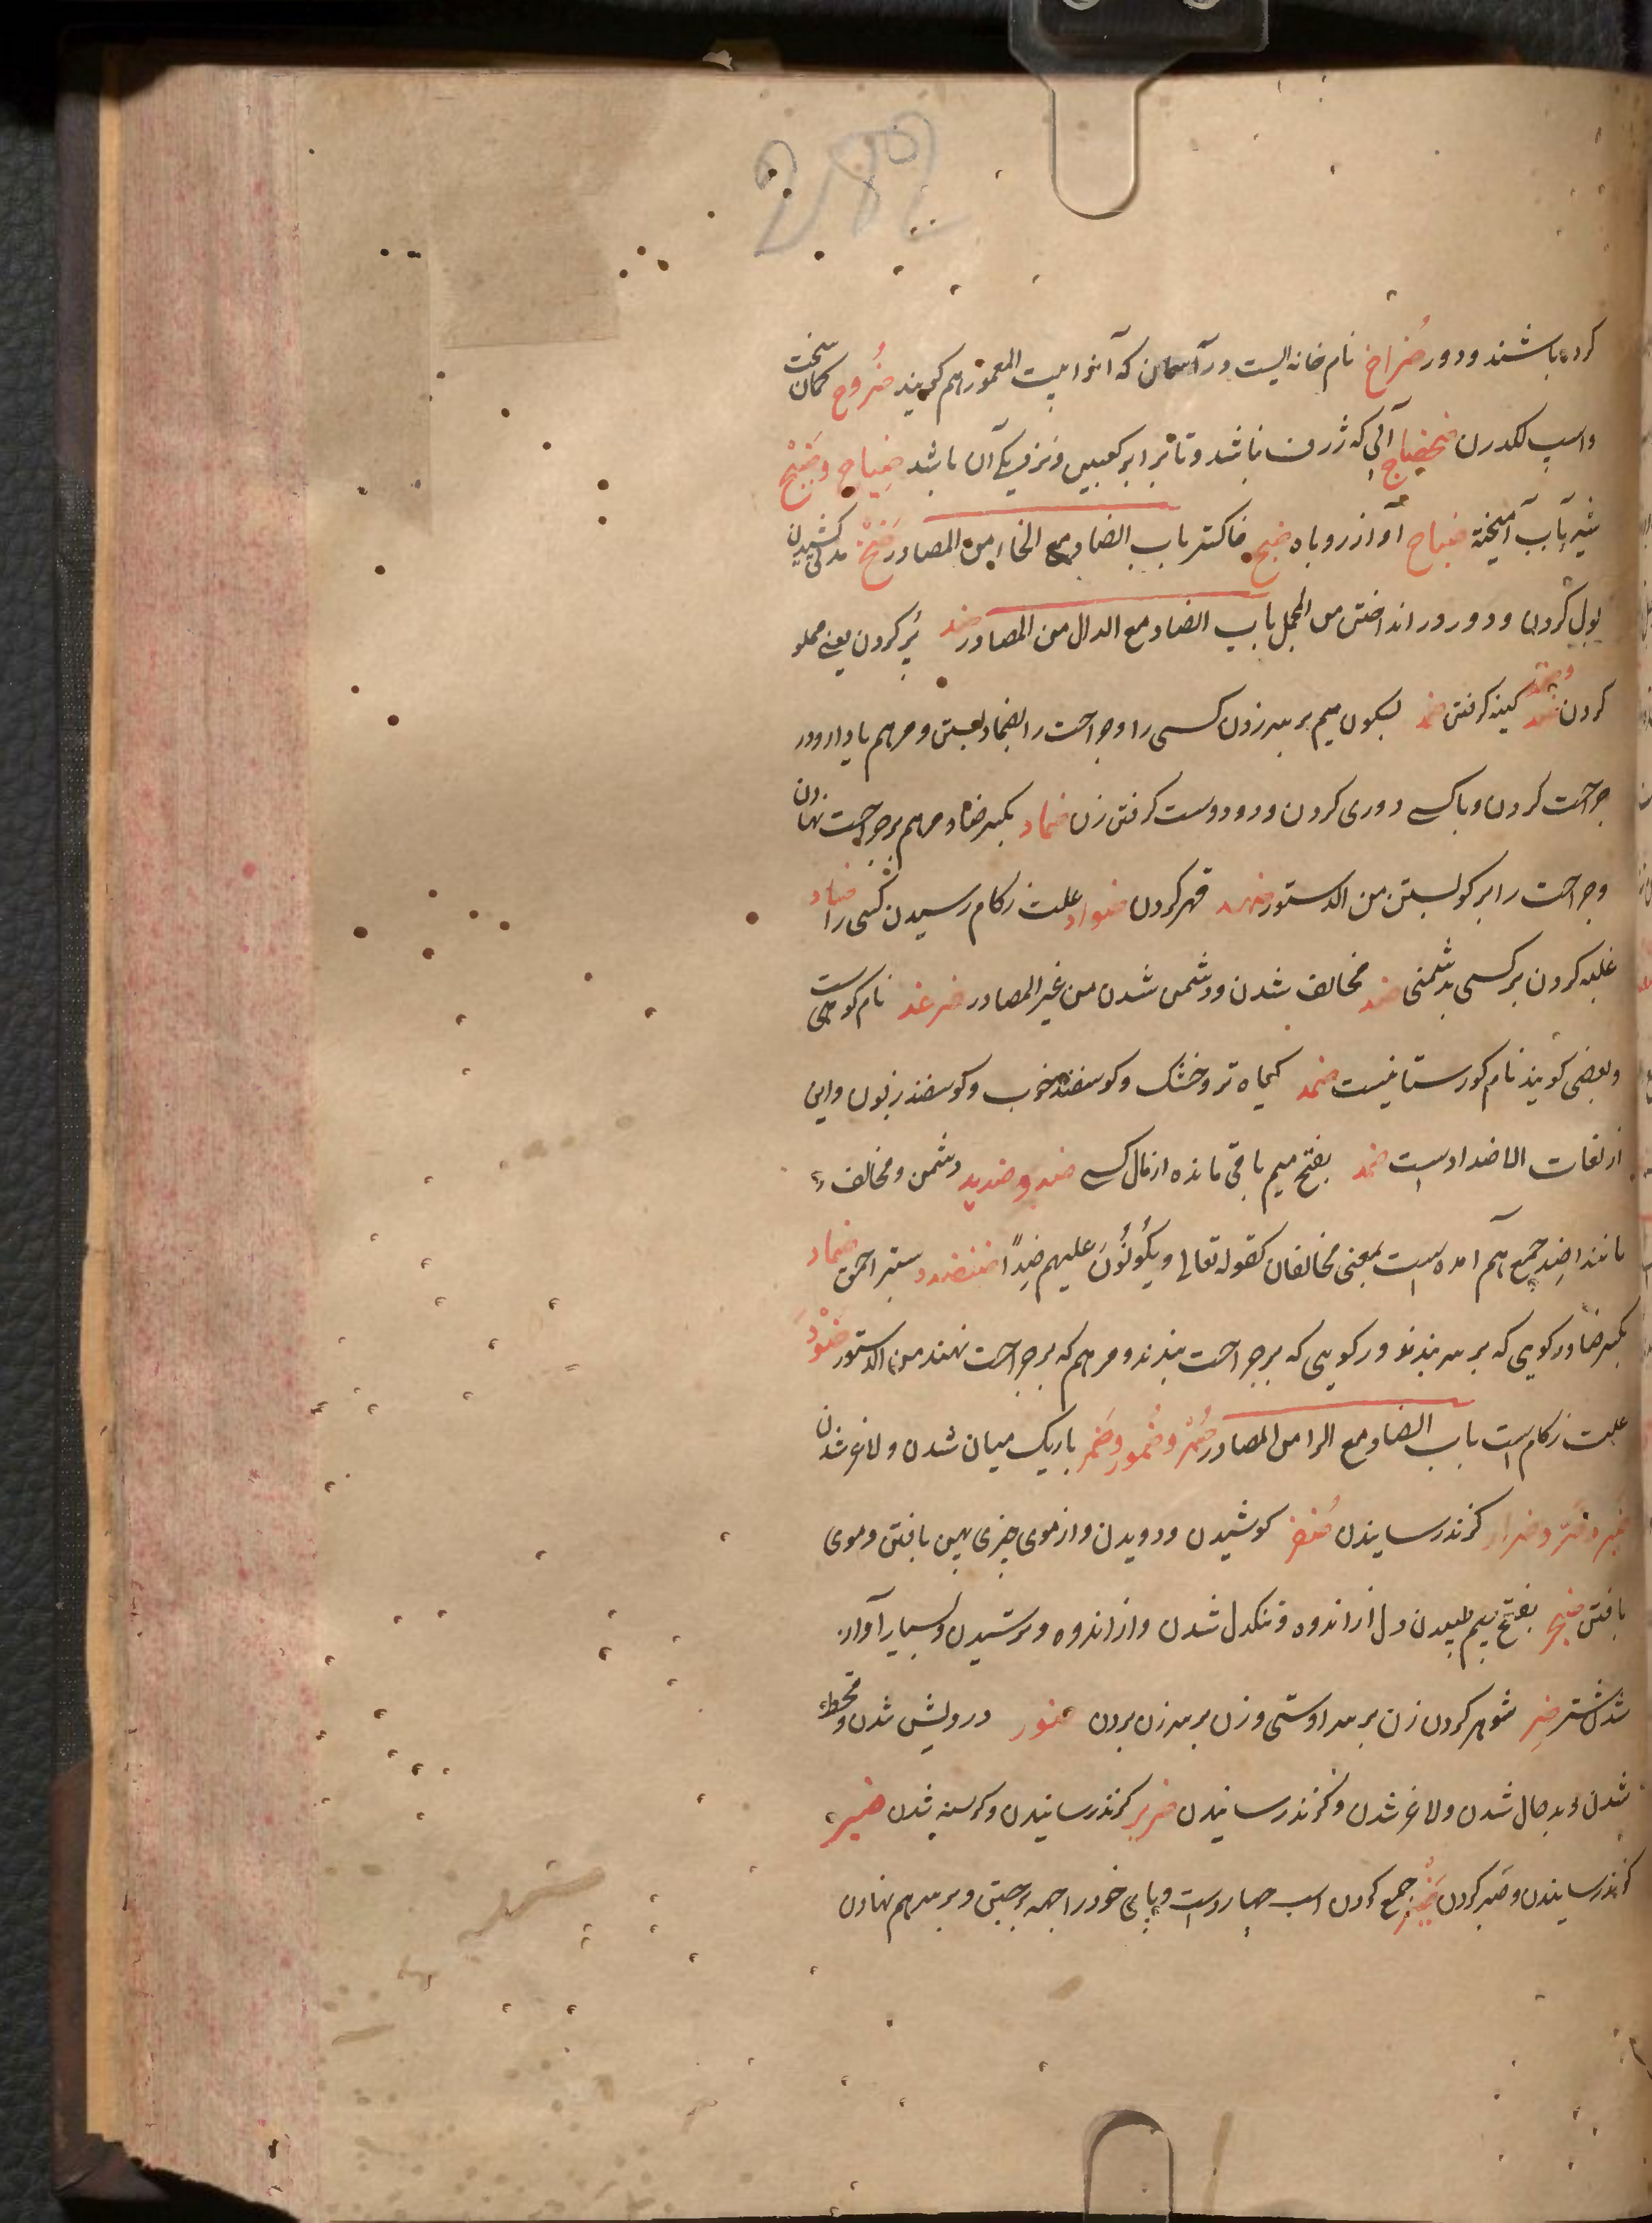 282
کرده باشند و دور ضُراح نام خانه ایست در آسمان که آنرا بیت المعمور هم گویند ضُروح کمان سخت
و اسپ لکدزن ضحضاح آبی که ژرف نباشد و تا برابر کعبین و نزدیک آن باشد ضیاح وضَیْح
شیر بآب آمیخته ضباح آواز روباه ضبح خاکستر باب الضاد مع الخاء من المصادر ضَخّ مد کشیدن
بول کردن و دور دور انداختن من المجمل باب الضاد مع الدال من المصادر ضد پُر کردن یعنی مملو
کردن ضمد کینه گرفتن ضمد بسکون میم بر سر زدن کسی را و جراحت را بضماد بستن و مرهم یا دارو در
جراحت کردن و با کسی دوری کردن و دو دوست گرفتن زن ضماد بکسر ضاد مرهم بر جراحت نهادن
و جراحت را برکو بستن من الدستور ضهد قهر کردن ضواد علت زکام رسیدن کسی را ضاد
غلبه کردن بر کسی بدشمنی ضد مخالف شدن و دشمن شدن من غیر المصادر ضرغد نام کوهی است
و بعضی گویند نام گورستانیست ضمد گیاه تر و خشک و گوسفند خوب و گوسفند زبون و این
از لغات الاضداد است ضمد بفتح میم باقی مانده از مال کسی ضد و ضدید دشمن و مخالف و
مانند ا ضِد جمع هم آمده است بمعنی مخالفان کقوله تعالی ویکُونُونَ علیهم ضِدًا ضفندد ستبر احمق ضماد
بکسر ضاد رکویی که بر سر بندند و رکویی که بر جراحت بندند و مرهم که بر جراحت نهند من الدستور ضَوْد
علت زکام است باب الضاد مع الرا من المصادر ضُمْر و ضُمور وضَمر باریک میان شدن و لاغر شدن
ضر و ضرار گزند رسانیدن ضفر کوشیدن و دویدن و از موی چیزی پهن بافتن و موی
بافتن ضجر بفتح جیم طپیدن دل از اندوه و تنگدل شدن و از اندوه و ترسیدن و بسیار آواز
شدن شتر ضِر شوهر کردن زن بر سر اوستی و زن بر سر زن بردن ضور درویش شدن و قحط
شدن و بد حال شدن و لاغر شدن و گزند رسانیدن ضریر گزند رسانیدن و گرسنه شدن ضیر
گزند رسانیدن و صبر کردن ضَبْر جمع کردن اسب چهار دست و پای خود را بهم بر جستن و بر سر هم نهادن